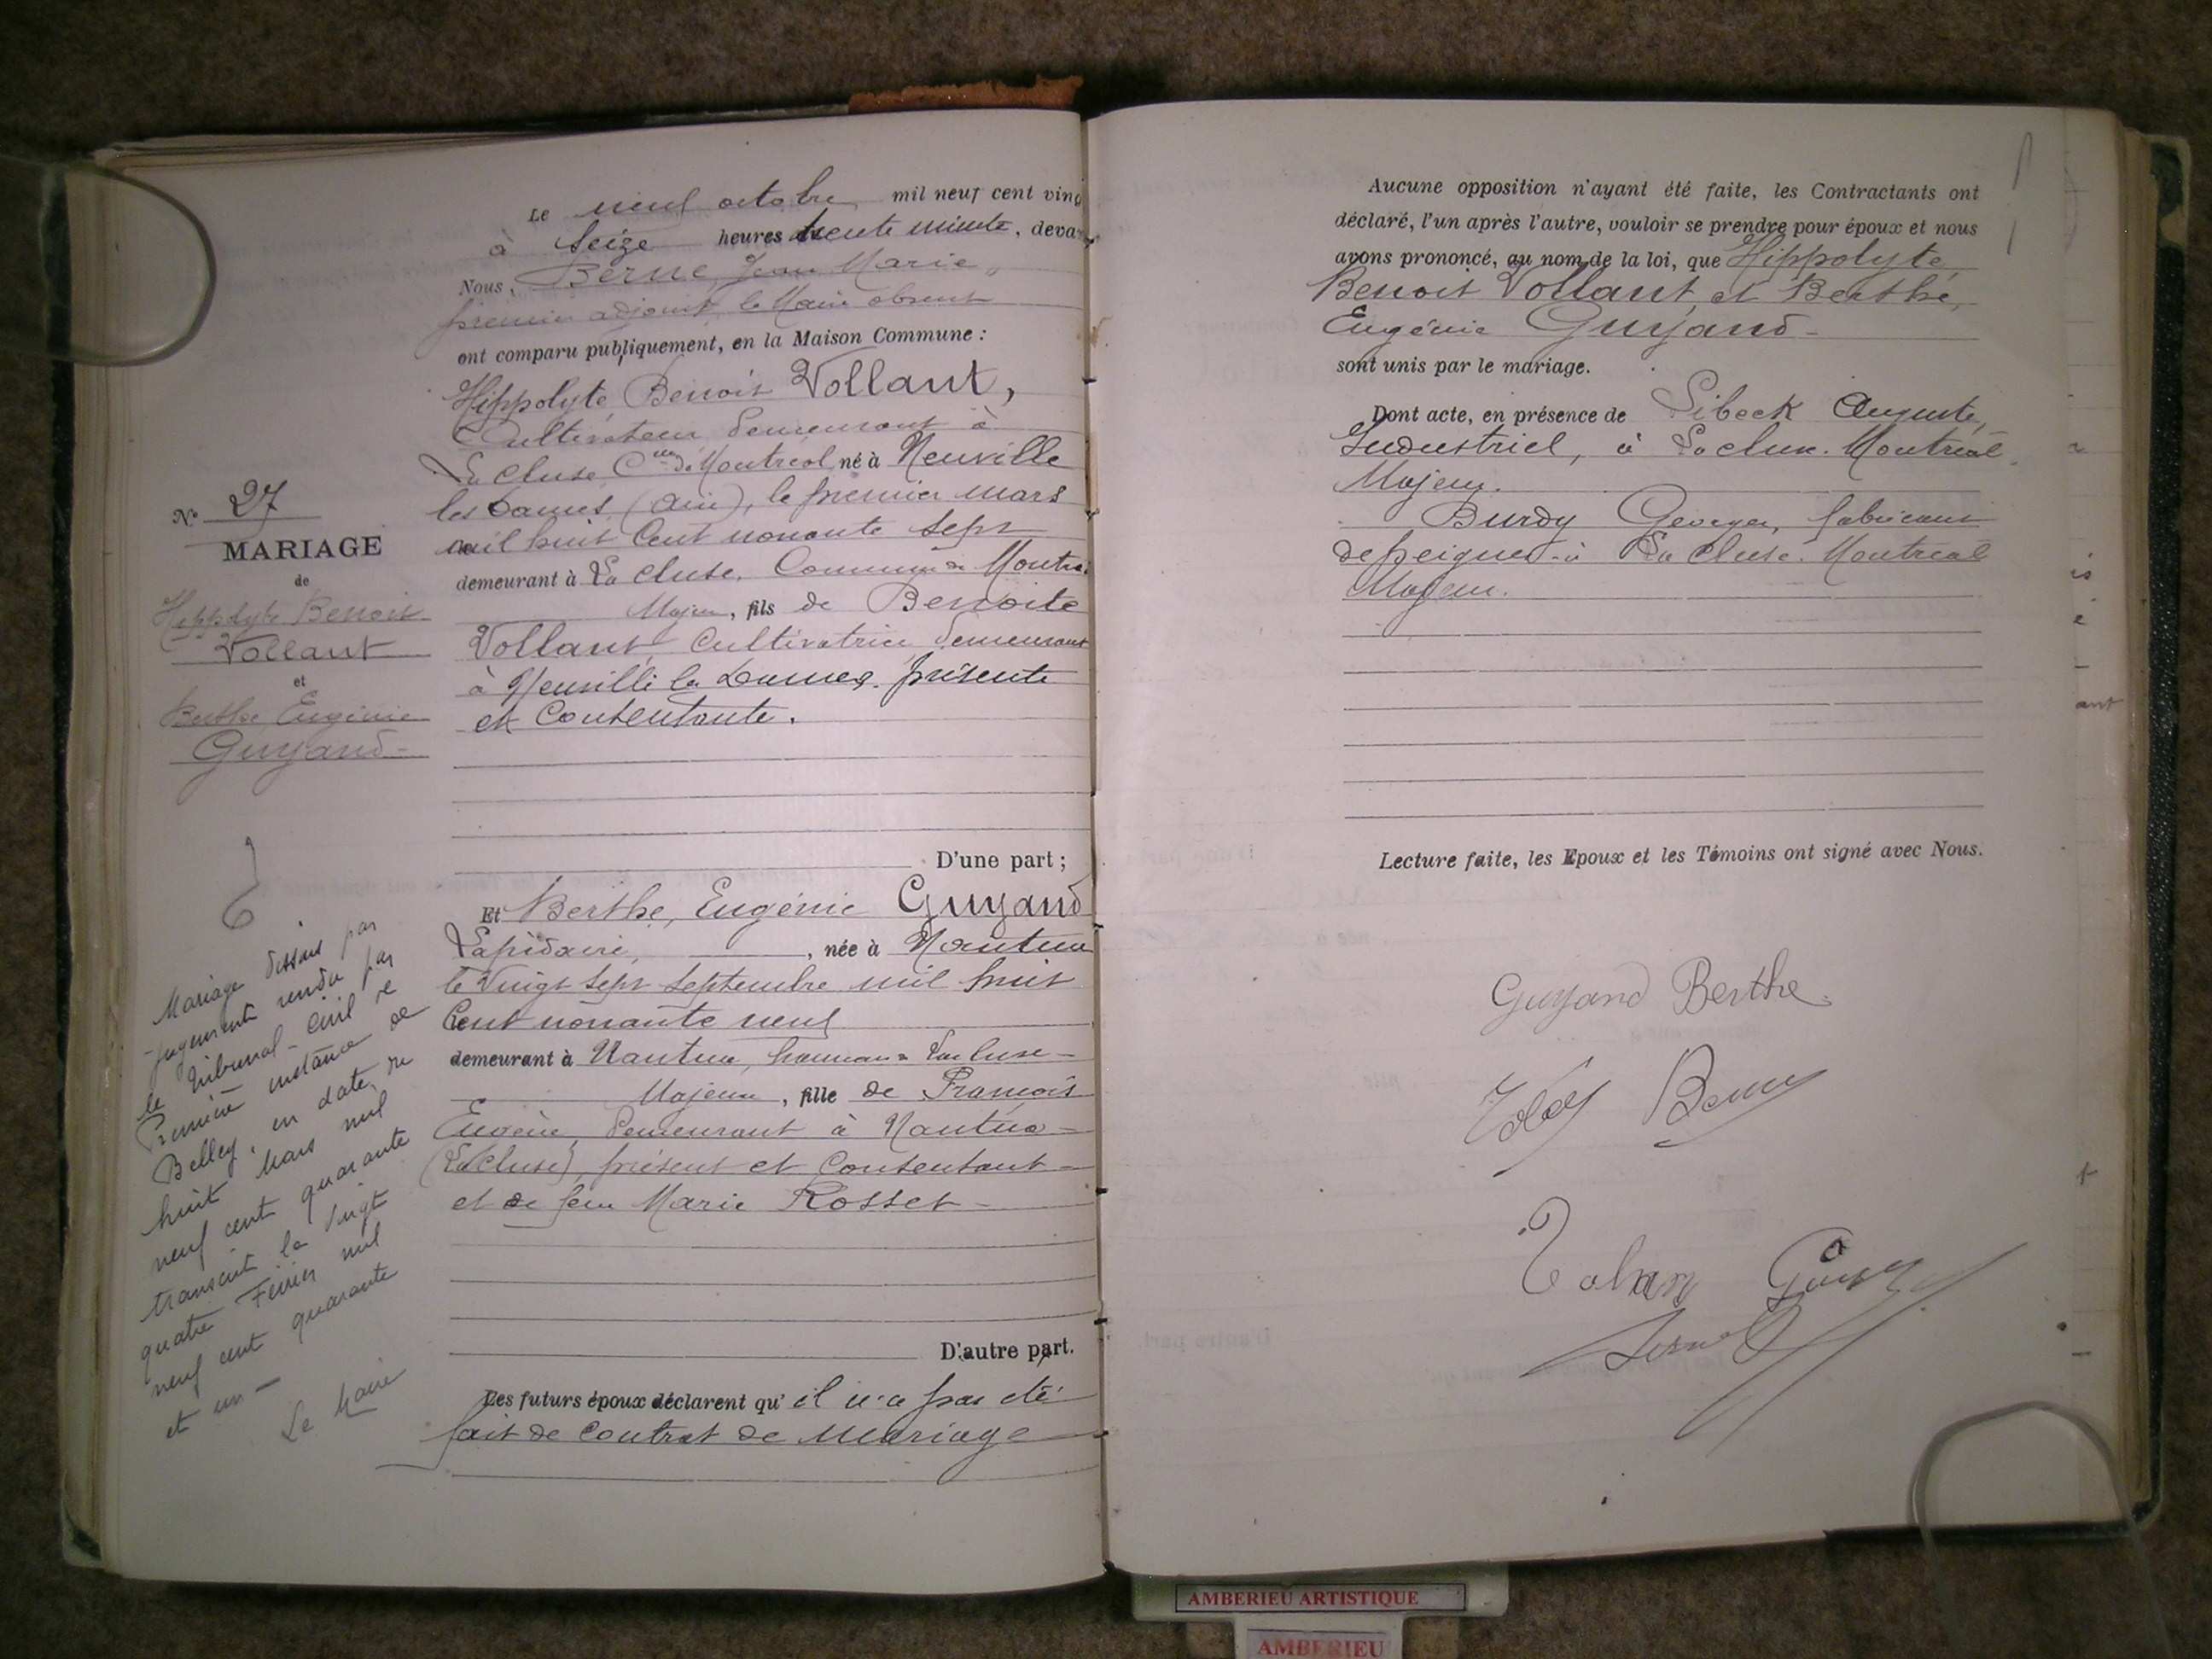 Le neuf octobre mil neuf cent ving
à Seize heures trente minute, deva
Nous, Berne, Jean Marie,
premier adjoint, le Maire absent
ont comparu publiquement, en la Maison Commune :
Hippolyte Benoit Vollant,
Cultivateur demeurant à
La Cluse, Cne de Montréal né à Neuville
les Dames, (Ain), le premier mars
mil huit Cent nonante sept
demeurant à La Cluse, Commune de Montré
Majeur, fils de Benoite
Vollant Cultivatrice, demeurant
à Neuville les Dames. présente
et Contentante.
D'une part ;
Et Berthe, Eugénie Guyand
Lapidaire, née à Nantua
le Vingt sept Septembre mil huit
Cent nonante neuf
demeurant à Nantua, La Cluse
Majeure, fille de François
Eugène, demeurant à Nantua
(La Cluse), présent et Contentant
et de feue Marie Rosset
D'autre part.
Les futurs époux déclarent qu'il n'a pas été
fait de Contrat de Mariage
No 27
MARIAGE
de
Hippolyte Benoit
Vollant
et
Berthe Eugénie
Guyand
Mariage dissous par
jugement rendu par
le tribunal civil de
Première instance de
Belley, en date du
huit Mars mil
neuf cent quarante
transcrit le Vingt
quatre Février mil
neuf cent quarante
et un
Le Maire
Aucune opposition n'ayant été faite, les Contractants ont
déclaré, l'un après l'autre, vouloir se prendre pour époux et nous
avons prononcé, au nom de la loi, que Hippolyte
Benoit Vollant, et Berthe,
Eugénie Guyand
sont unis par le mariage.
Dont acte, en présence de Sibeck Auguste,
Industriel, à La Cluse. Montréal
Majeur.
Burdy Georges, fabricant
de peignes à La Cluse. Montréal
Majeur.
Lecture faite, les Epoux et les Témoins ont signé avec Nous.
Guyand Berthe
ant
AMBERIEU ARTISTIQUE
AMBERIEU